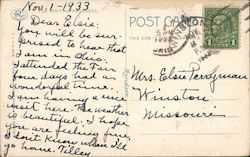 Nov. 1-1933
Dear Elsie:
You will be sur-
prised to hear that
I am in Ohio.
I attended the Fair
four days had a
wonderful time.
I am having a nice
visit here. The weather
is beautiful. I hope
you are feeling fine,
I don't know when I'll
go home. Tilley
POST CARD
Mrs. Elsie Perryman
Winston
Missouri